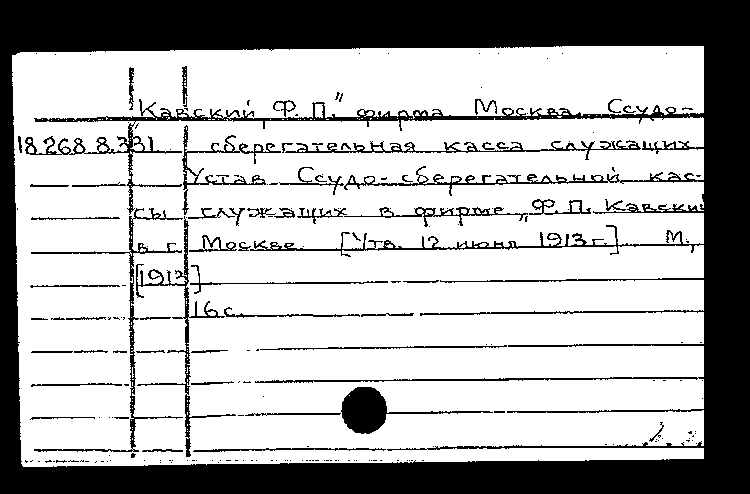 "Кавский, Ф. П." фирма. Москва. Ссудо-
18.268.8.331 сберегательная касса служащих
Устав Ссудо-сберегательной кас-
сы служащих в фирме „Ф. П. Кавский
в г. Москве. [Утв. 12 июня 1913 г.] М.,
[1913]
16 с.